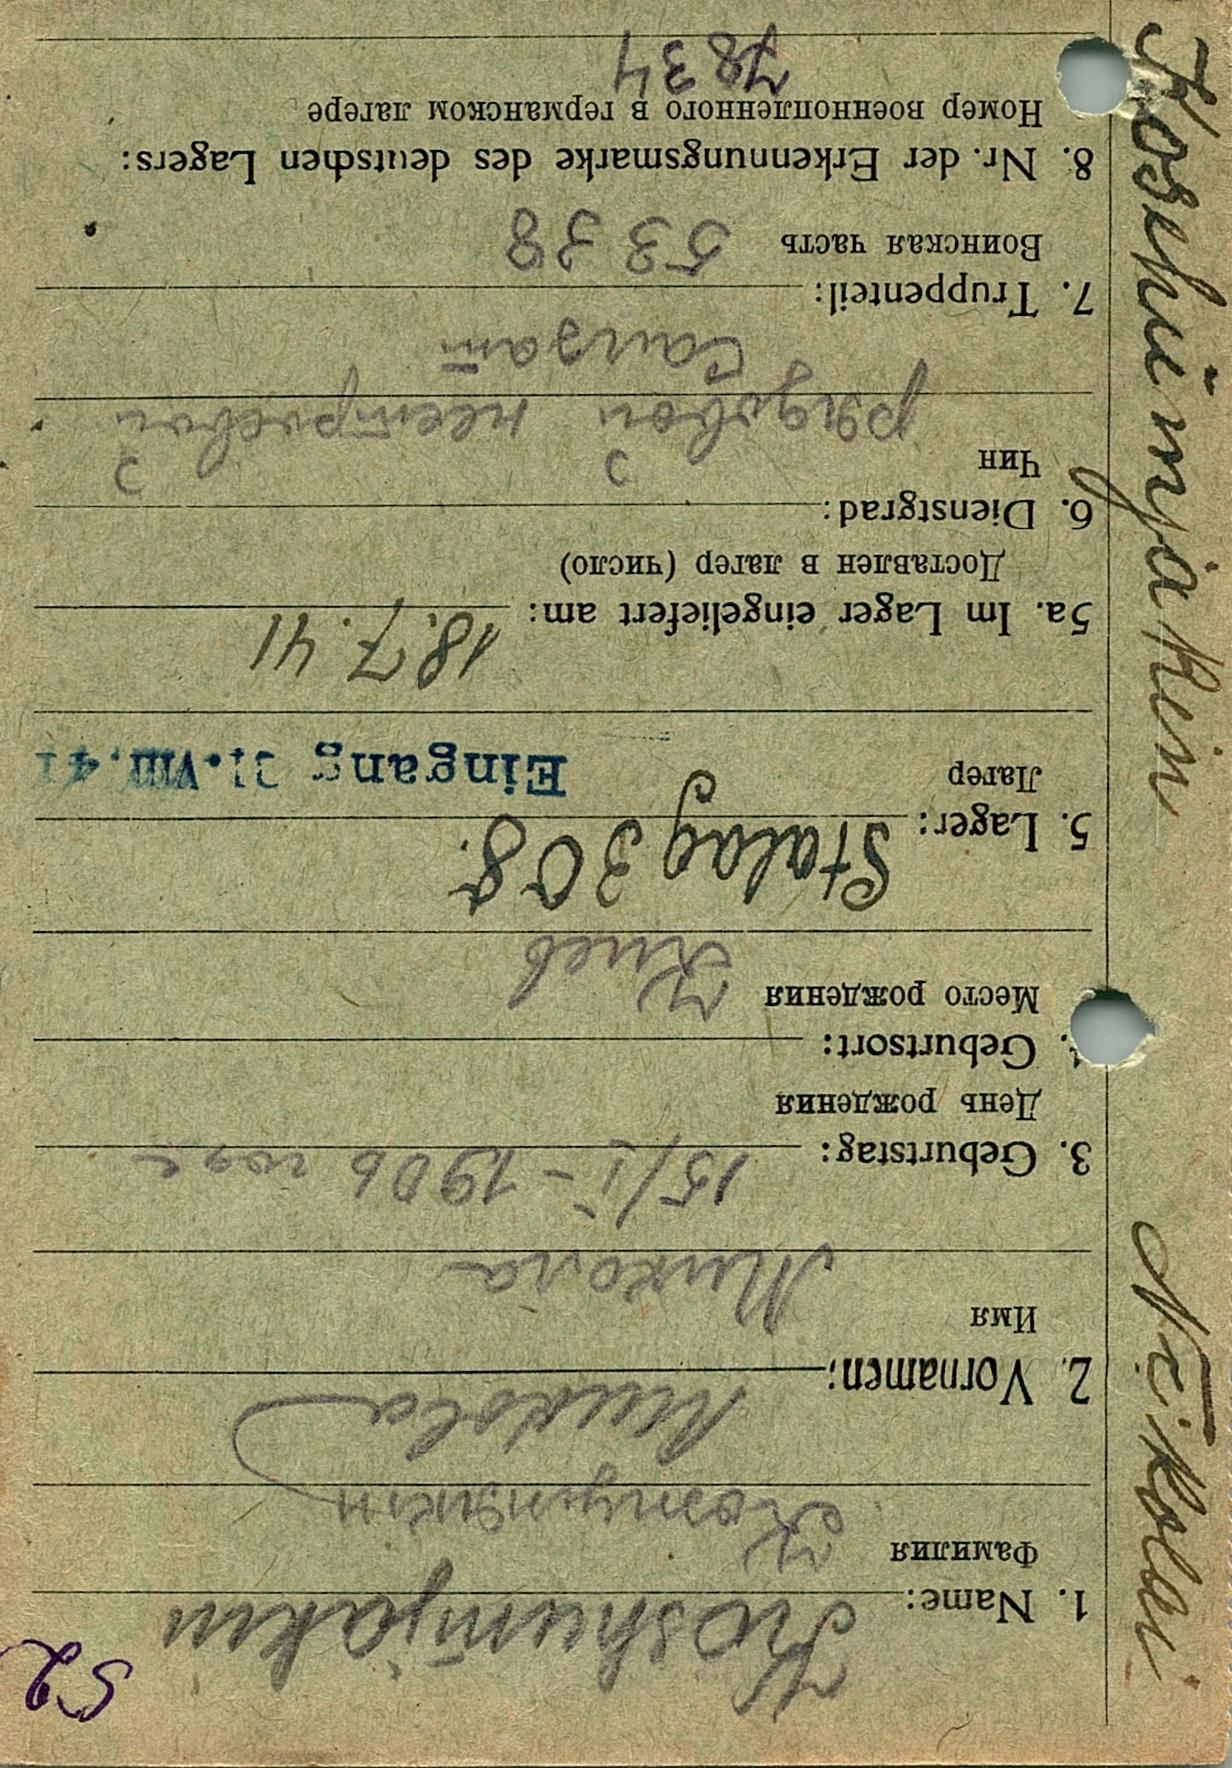 52
1. Name: Koshumjakin
Фамилия Кожумякин
2. Vornamen: Mikola
Имя Микола
3. Geburtstag: 15/I - 1906 года
День рождения
4. Geburtsort:
Место рождения Киев
5. Lager: Stalag 308.
Лагерь Eingang 31.VIII.41
5a. Im Lager eingeliefert am: 18.7.41
Доставлен в лагерь (число)
6. Dienstgrad:
Чин
рядовой
7. Truppenteil:
Воинская часть 5338
8. Nr. der Erkennungsmarke des deutschen Lagers:
Номер военнопленного в германском лагере
7834
Koshumjakin Nikolai